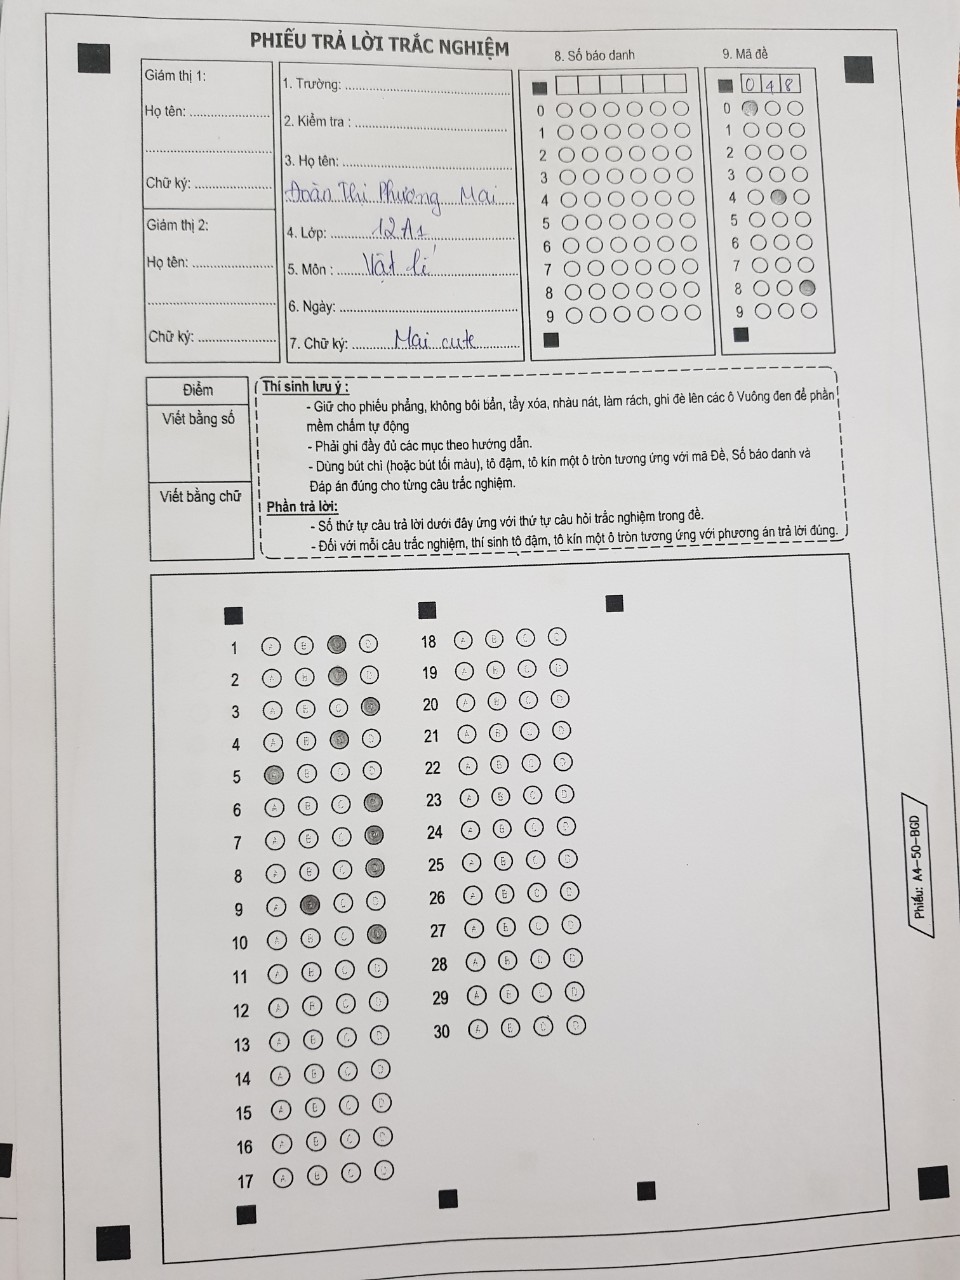 PHIẾU TRẢ LỜI TRẮC NGHIỆM
Giám thị 1:
Họ tên: ....................
....................
Chữ ký: ....................
Giám thị 2:
Họ tên: ....................
....................
Chữ ký: ....................
1. Trường: ....................
2. Kiểm tra : ....................
3. Họ tên: ....................
Đoàn Thị Phương Mai
4. Lớp: 12A1
5. Môn : Vật lí
6. Ngày: ....................
7. Chữ ký: Mai cute
8. Số báo danh
0
1
2
3
4
5
6
7
8
9
9. Mã đề
0 4 8
0
1
2
3
4
5
6
7
8
9
Điểm
Viết bằng số
Viết bằng chữ
Thí sinh lưu ý :
- Giữ cho phiếu phẳng, không bôi bẩn, tẩy xóa, nhàu nát, làm rách, ghi đè lên các ô Vuông đen để phần
mềm chấm tự động
- Phải ghi đầy đủ các mục theo hướng dẫn.
- Dùng bút chì (hoặc bút tối màu), tô đậm, tô kín một ô tròn tương ứng với mã Đề, Số báo danh và
Đáp án đúng cho từng câu trắc nghiệm.
Phần trả lời:
- Số thứ tự câu trả lời dưới đây ứng với thứ tự câu hỏi trắc nghiệm trong đề.
- Đối với mỗi câu trắc nghiệm, thí sinh tô đậm, tô kín một ô tròn tương ứng với phương án trả lời đúng.
1 A B D
2 A B D
3 A B C
4 A B D
5 B C D
6 A B C
7 A B C
8 A B C
9 A C D
10 A B C
11 A B C D
12 A B C D
13 A B C D
14 A B C D
15 A B C D
16 A B C D
17 A B C D
18 A B C D
19 A B C D
20 A B C D
21 A B C D
22 A B C D
23 A B C D
24 A B C D
25 A B C D
26 A B C D
27 A B C D
28 A B C D
29 A B C D
30 A B C D
Phiếu: A4-50-BGD